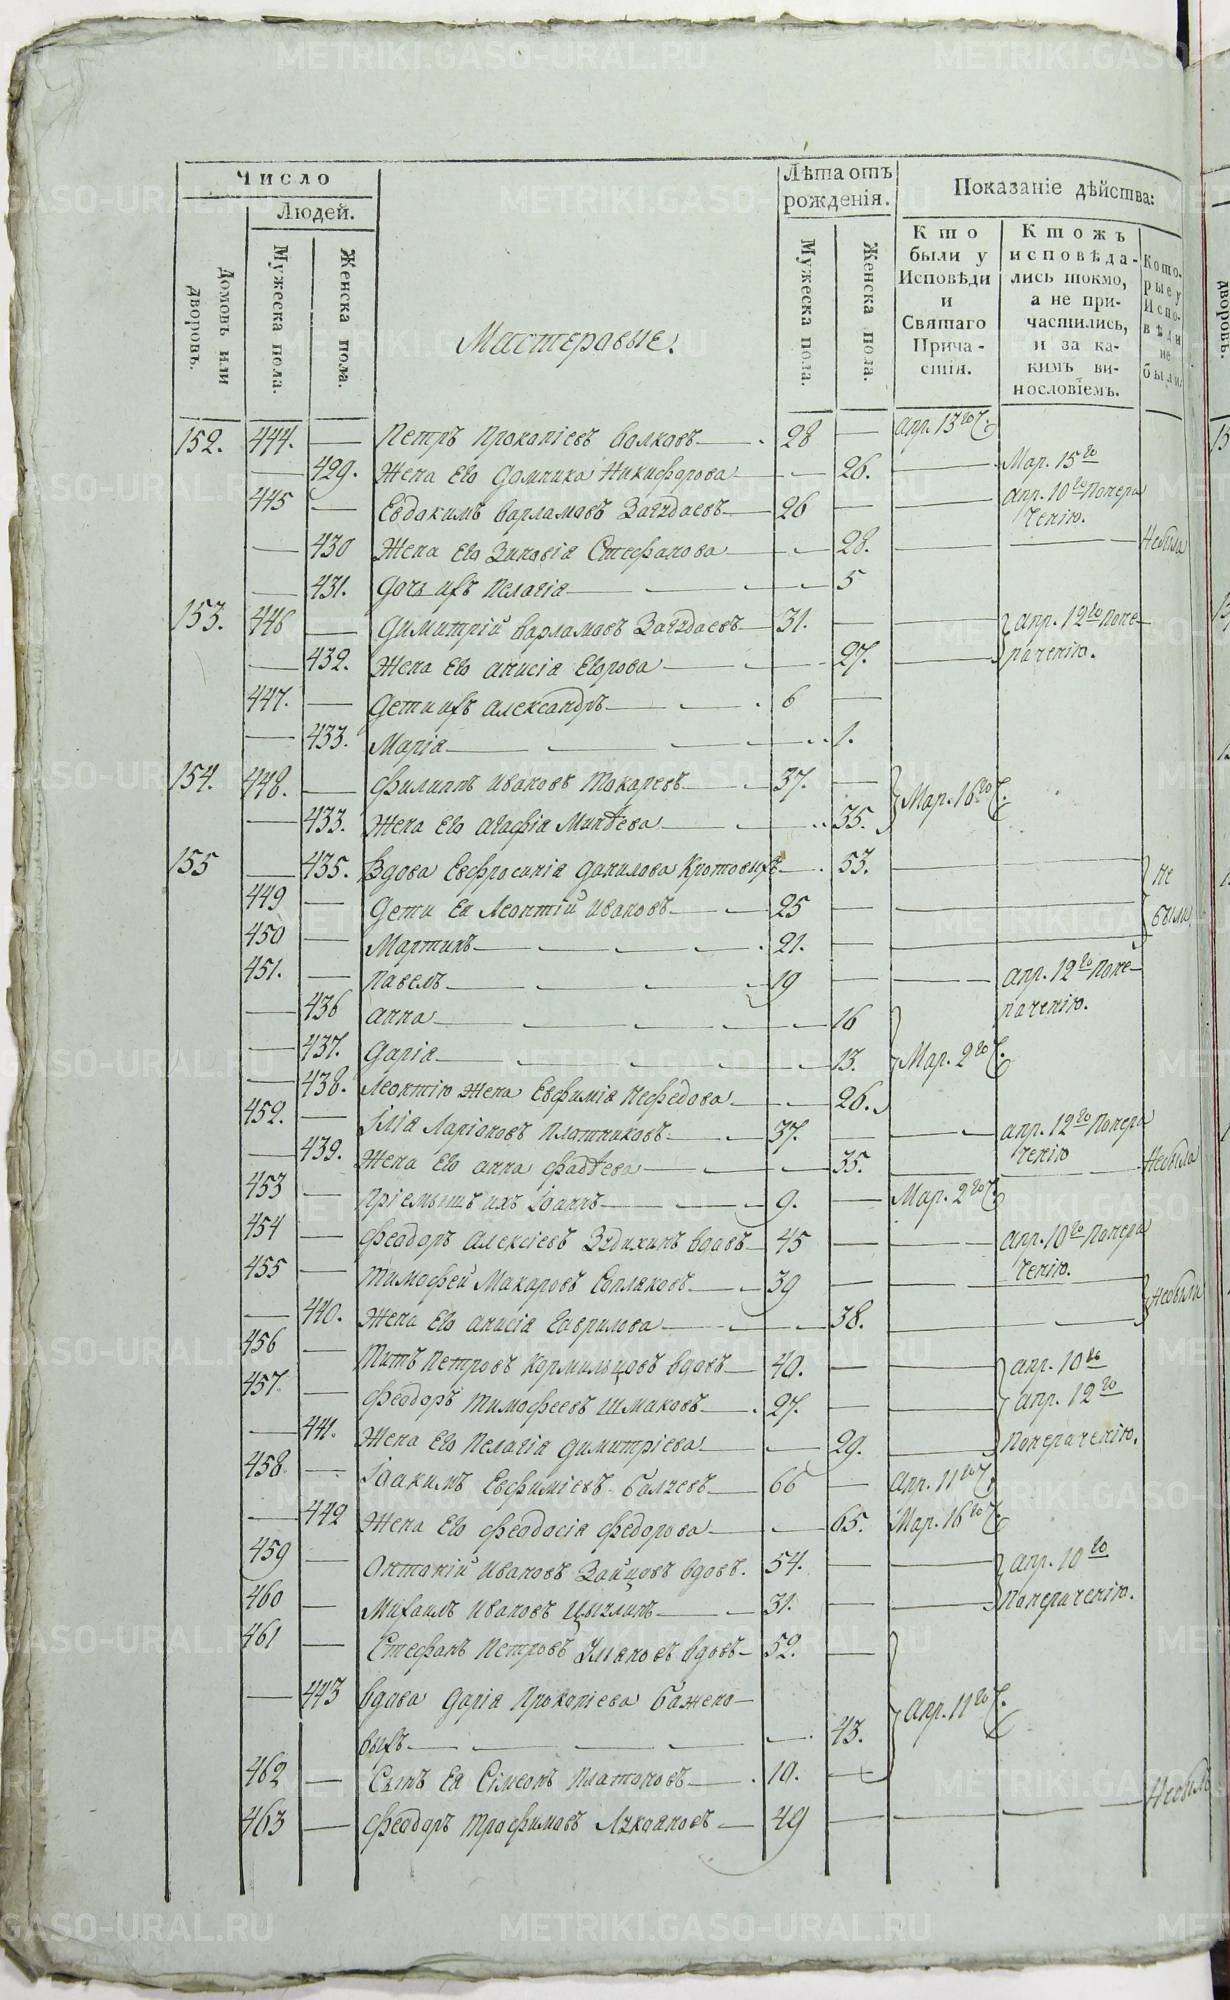 Число
Людей.
Домовъ или дворовъ.
Мужеска пола.
Женска пола.
Мастеровые.
Лѣта отъ рожденія.
Мужеска пола.
Женска пола.
Показаніе дѣйства:
Кто были у Исповѣди и Святаго Прича-стія.
Ктожъ исповѣда-лись токмо, а не при-частились, и за ка-кимъ ви-нословіемъ.
Кото-рые у Испо-вѣди не были.
152. 444. Петръ Прокопіевъ Волковъ 28 Апр. 13го
429. Жена Его Домника Никифорова 26. Мар. 15го
445 Евдокимъ Варламовъ 26 апр. 10го понера
чению.
430 Жена Его Зиновія Стефанова 28. Небыла
431. Дочь ихъ Пелагія 5
153. 446 Димитрій Варламовъ 31. апр. 12го поне-
432. Жена Его Анисія Егорова 27. рачению.
447. Дети ихъ Александръ 6
433. Марія 1.
154. 448. Филиппъ Ивановъ Токаревъ 37. Мар. 16го
433. Жена Его Агафія Миндѣева 35.
155 435. Вдова Евфросинія Данилова Кротовыхъ 53. не
449 Дети Ея Леонтій Ивановъ 25 были
450 Мартинъ 21.
451. Павелъ 19 апр. 12го поне-
436 Анна 16 рачению.
437. Дарія 13. Мар. 2го
438. Леонтію Жена Евфимія Нефедова 26.
452. Илія Ларіоновъ Плотниковъ 37. апр. 12го понера
439. Жена Его Анна Фадѣева 35. чению Небыла
453 Пріемышъ ихъ Іоаннъ 9. Мар. 2го
454 Феодоръ Алексіевъ вдовъ 45 апр. 10го понера
455 Тимофей Макаровъ 39 чению.
440. Жена Его Анисія Гаврилова 38. небыли
456 Титъ Петровъ Кормильцовъ вдовъ 40. апр. 10го
457. Феодоръ Тимофеевъ Шмаковъ 27. апр. 12го
441. Жена Его Пелагія Димитріева 29. понерачению.
458. Іоакимъ Евфиміевъ 66 Апр. 11го
442 Жена Его Феодосія Федорова 65. Мар. 16го
459 Антоній Ивановъ Зайцовъ вдовъ. 54. апр. 10го
460 Михаилъ Ивановъ 31. понерачению.
461 Стефанъ Петровъ вдовъ 52.
443 Вдова Дарія Прокопіева Бажено-
выхъ 43. Апр. 11го
462 Сынъ Ея Сімеонъ Платоновъ 10.
463 Феодоръ Трофимовъ 49 Небылъ
METRIKI.GASO-URAL.RU